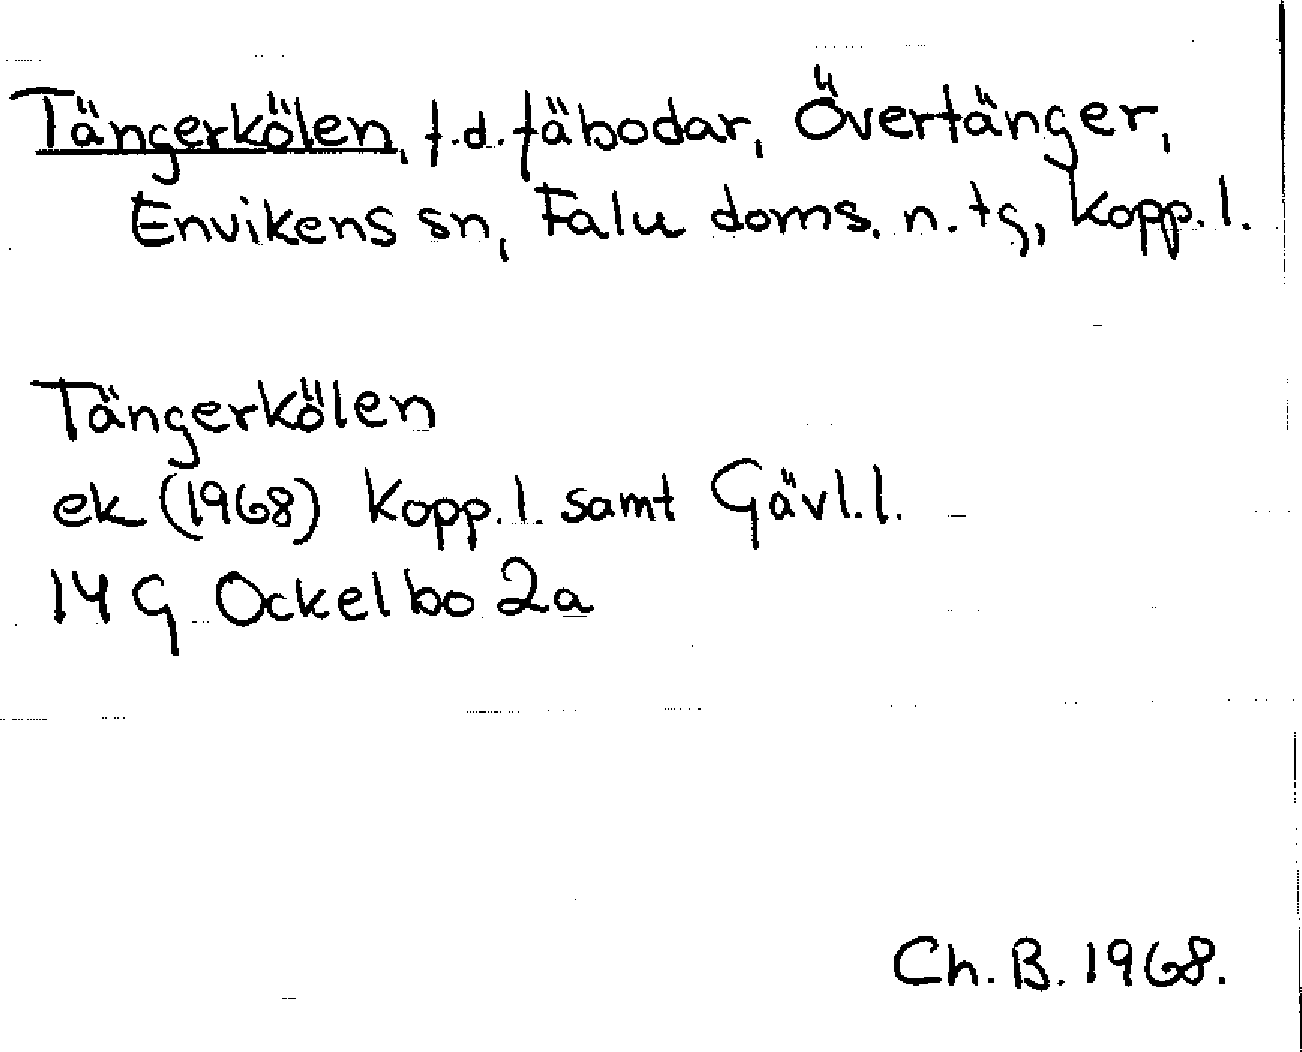 Tängerkölen, f.d. fäbodar, Övertänger,
Envikens sn, Falu doms. n. tg, Kopp. l.
Tängerkölen
ek (1968) Kopp. l. samt Gävl. l.
14 G Ockelbo 2a
Ch. B. 1968.